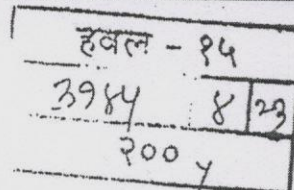 हवल - १५
३९४५ ४ २३
२००५